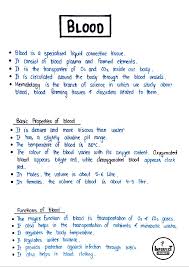 BLOOD
• Blood is a specialised liquid connective tissue.
• It consist of blood plasma and formed elements.
• It is the transporter of O₂ and CO₂ inside our body.
• It is circulated around the body through the blood vessels.
• Hematology is the branch of science in which we study about
blood, blood forming tissues & disorders related to them.
Basic Properties of blood
• It is denser and more viscous than water.
• It has a slightly alkaline pH range.
• The temperature of blood is 38°C.
• The colour of the blood varies with its oxygen content. Oxygenated
blood appears bright red, while deoxygenated blood appears dark
red.
• In males, the volume is about 5-6 litre.
• In females, the volume of blood is 4-5 litre.
Functions of blood
• The major function of blood is transportation of O₂ & CO₂ gases.
• It also helps in the transportation of nutrients, hormones etc.
• It regulates body temperature.
• It regulates water balance.
• It provides protection against infection through
• It also helps in clotting.